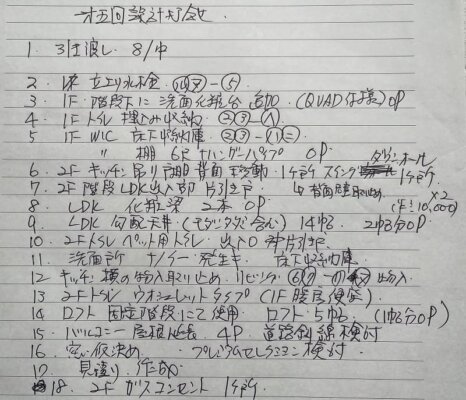 第五回設計打合せ.
1. 引渡し 8/中
2. 立上り水栓
3. 1F 階段下に洗面化粧台 追加 (QUAD仕様) OP
4. 1F トイレ 埋込み収納 ②③-①
5. 1F WIC 床下収納庫 ②③-①
〃 棚 6尺 ハンガーパイプ OP
6. 2F キッチン吊り戸棚 背面 移動 1ヶ所 スイング ダウンホール 1ヶ所
7. 2F 階段 LDK出入部 片引き戸
8. LDK 化粧梁 2本 OP ×2
9. LDK 勾配天井 (モダンタダ含む) 14帖 2帖分OP
10. 2Fトイレ ペット用トイレ 出入口 片引き戸
11. 洗面所 床下収納庫
12. キッチン横の物入取り止め リビング 物入
13. 2Fトイレ ウォシュレットタイプ (1F 暖房便座)
14. ロフト 固定階段にて使用 ロフト 5帖 (1帖分OP)
15. バルコニー屋根延長 4P 道路斜線検討
16. 窓 仮決め プレミアムセレクション検討
17. 見積り 作成
18. 2F ガスコンセント 1ヶ所